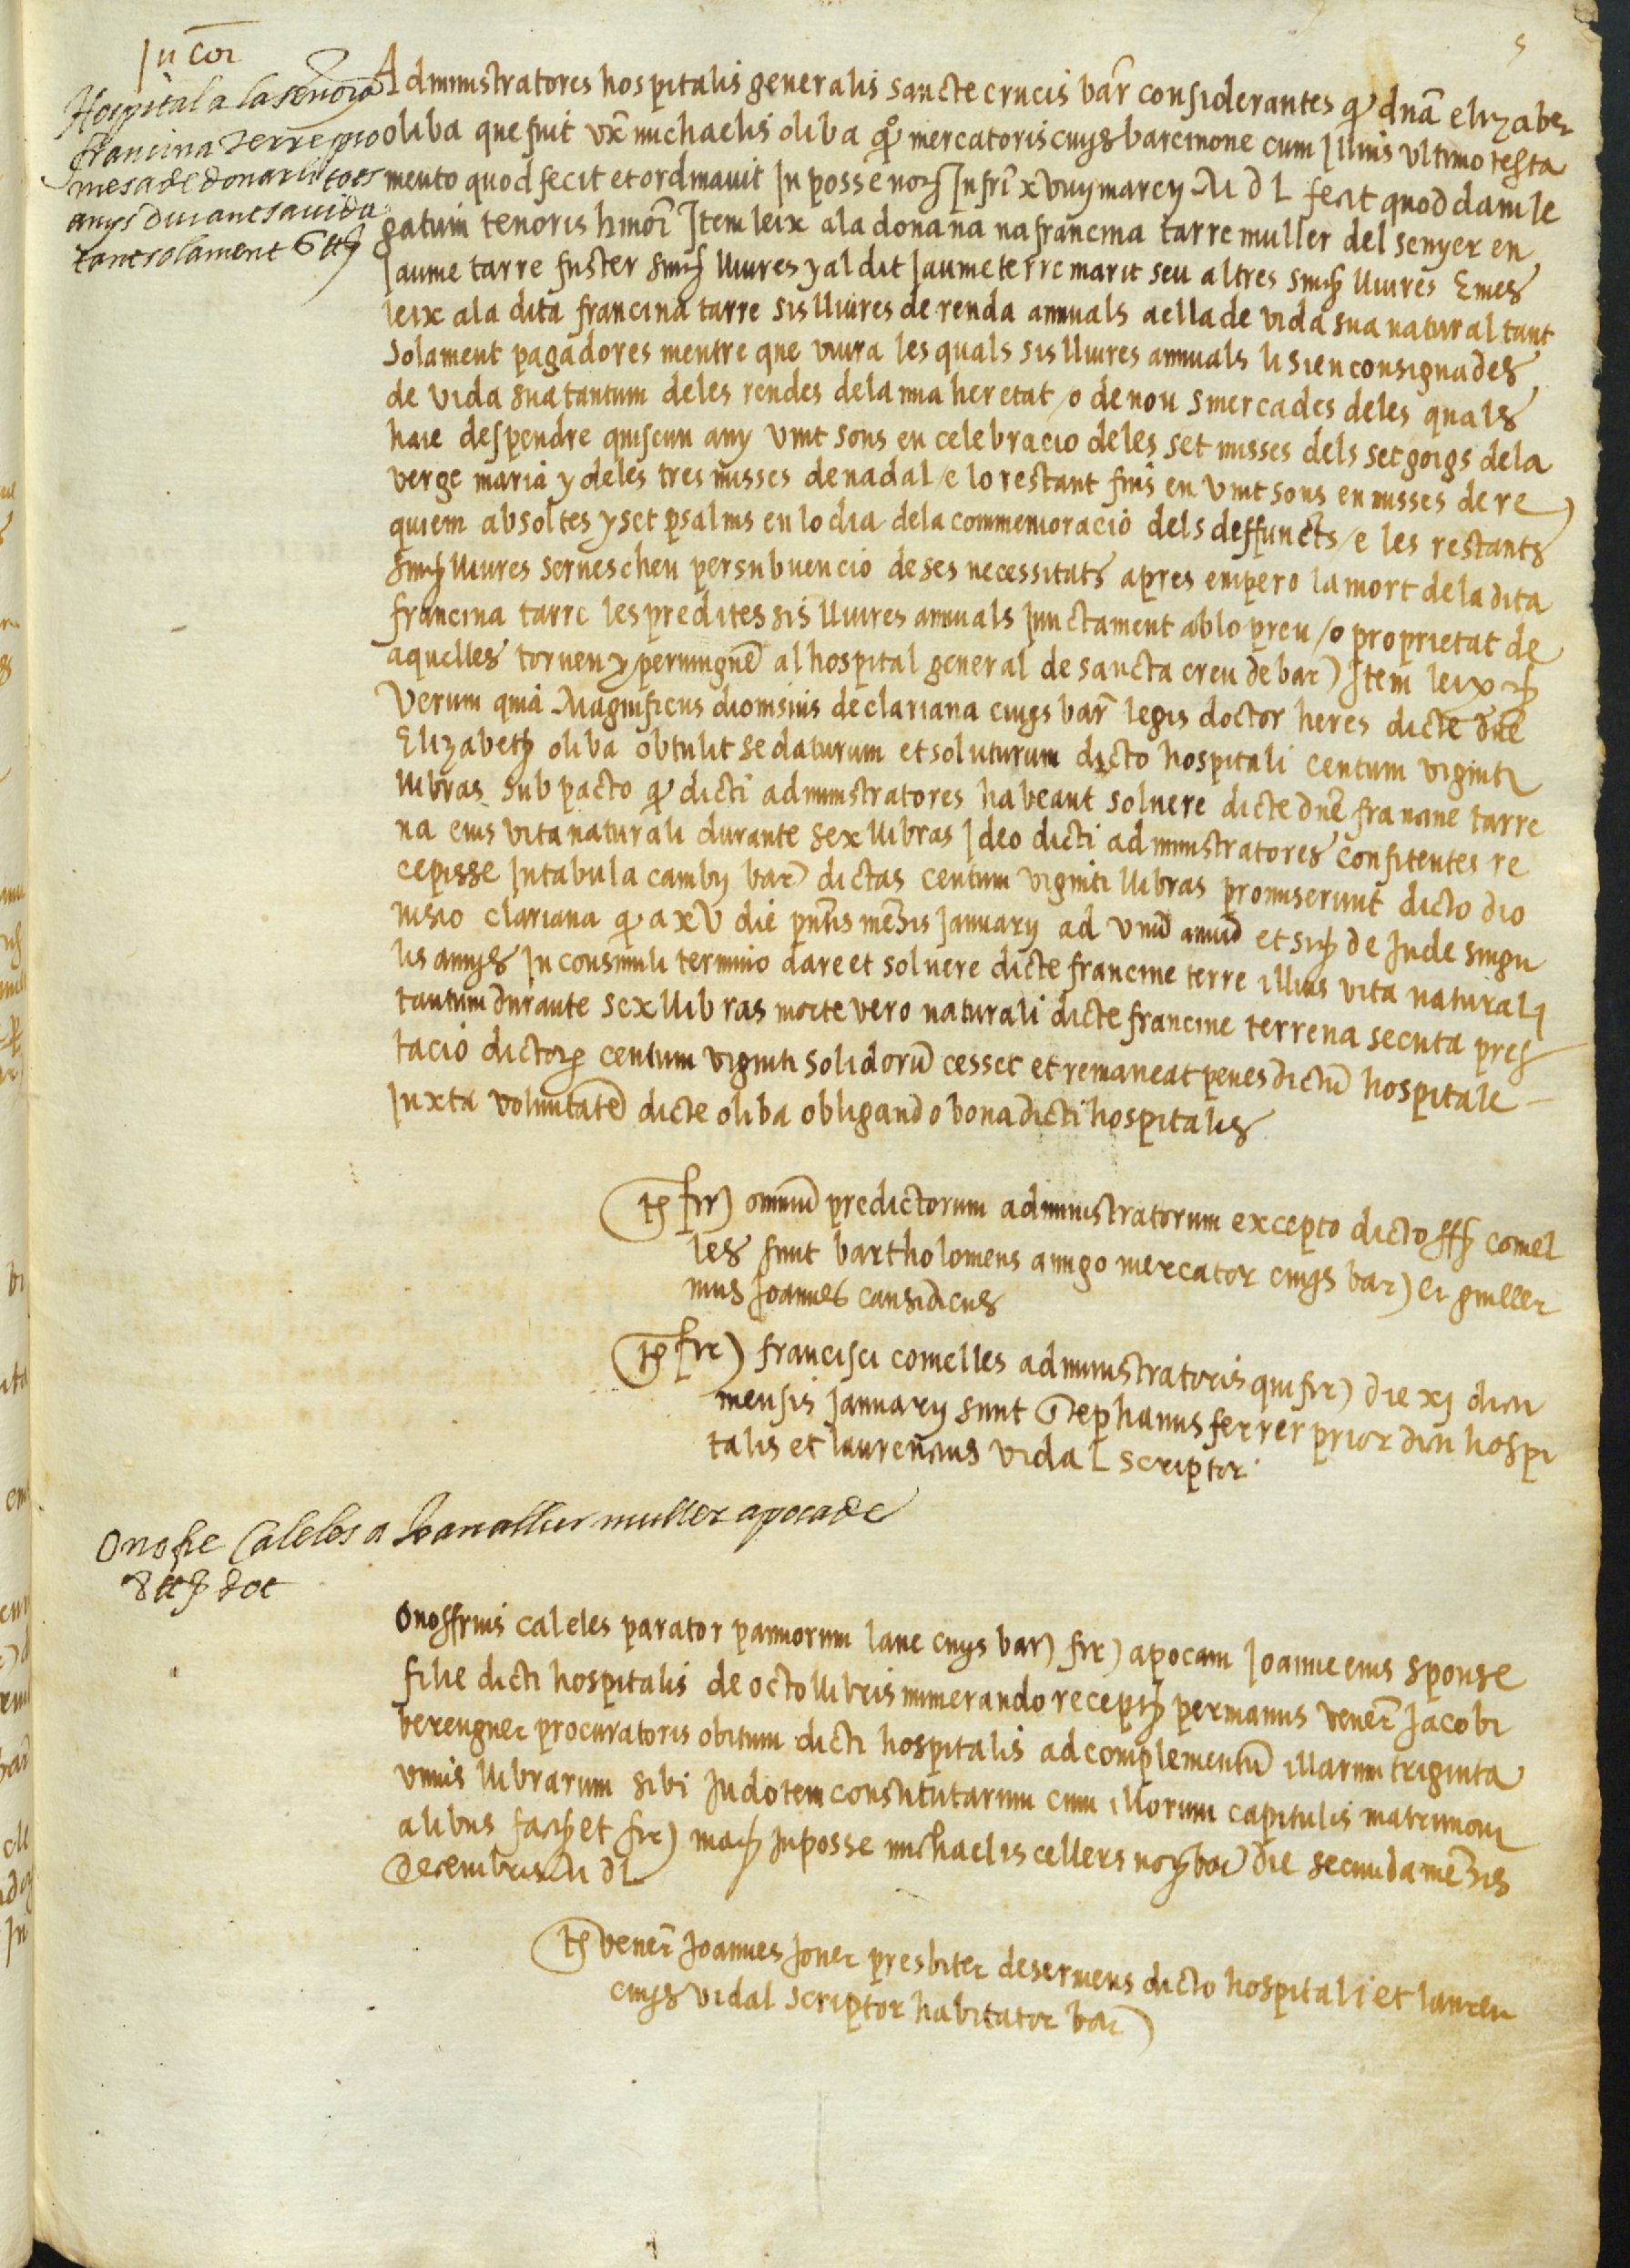 5
In cor
Hospital a la senora
francina terre promesa de donar li tots
anys durant sa vida
tant solament 6 ll
Administratores hospitalis generalis sancte crucis bar considerantes q dna elizabet
oliba que fuit vx michaelis oliba q mercatoris civis barcinone cum illius ultimo testa
mento quod fecit et ordinavit in posse nor infri xviiij marcy M D L fecit quoddam le
gatum tenoris hmoi Item leix ala dona na na francina tarre muller del senyer en
Jaume tarre fuster sinch lliures y al dit Jaume terre marit seu altres sinch lliures E mes
leix ala dita francina tarre sis lliures de renda annuals a ella de vida sua natural tant
solament pagadores mentre que viura les quals sis lliures annuals li sien consignades
de vida sua tantum deles rendes dela mia heretat /o de nou smercades deles quals
haie despendre quiscun any vint sous en celebracio deles set misses dels set goigs dela
verge maria y deles tres misses de nadal /e lo restant fins en vint sous en misses de re
quiem absoltes y set psalms en lo dia dela commemoracio dels deffuncts /e les restants
sinch lliures servescheu per subvencio de ses necessitats apres empero la mort dela dita
francina tarre les predites sis lliures annuals junctament ab lo preu /o proprietat de
aquelles tornen y pervinguen al hospital general de sancta creu de bar) Item leix &
Verum quia Magnificus dionisius de clariana civis bar legis doctor heres dicte dne
Elizabeth oliba obtulit se daturum et soluturum dicto hospitali centum viginti
llibras sub pacto q dicti administratores habeant solvere dicte dne francine tarre
na eius vita naturali durante sex llibras Ideo dicti administratores confitentes re
cepisse in tabula camby bar dictas centum viginti llibras promiserunt dicto dio
nisio clariana q a xv die pntis mensis January ad unu annu et sich de inde singu
lis annys in consimili termino dare et solvere dicte francine terre illius vita naturali
tantum durante sex llibras morte vero naturali dicte francine terrena secuta pres
tacio dictorum centum viginti solidoru cesset et remaneat penes dictu hospitale
Juxta voluntate dicte oliba obligando bona dicti hospitalis
ts fir) omniu predictorum administratorum excepto dicto ff comel
les sunt bartholomeus amigo mercator civis bar) et guiller
mus Joannes causidicus
ts fir) francisci comelles administratoris qui fir) die xj dicti
mensis January sunt Stephanus ferrer prior dicti hospi
talis et laurencius vidal scriptor
Onofre Caleles a Joana llur muller apoca de
8 ll dot
Onoffrius caleles parator pannorum lane civis bar) fir) apocam Joanne eius sponse
filie dicti hospitalis de octo llibris numerando receptis per manus vener Jacobi
berenguer procuratoris obituum dicti hospitalis ad complementu illarum triginta
unius llibrarum sibi in dotem constitutarum cum illorum capitulis matrimoni
alibus factis et fir) in posse michaelis cellers nory bar die secunda mensis
Decembris M D L
ts vener Joannes Joner presbiter deserviens dicto hospitali et lauren
cius vidal scriptor habitator bar)